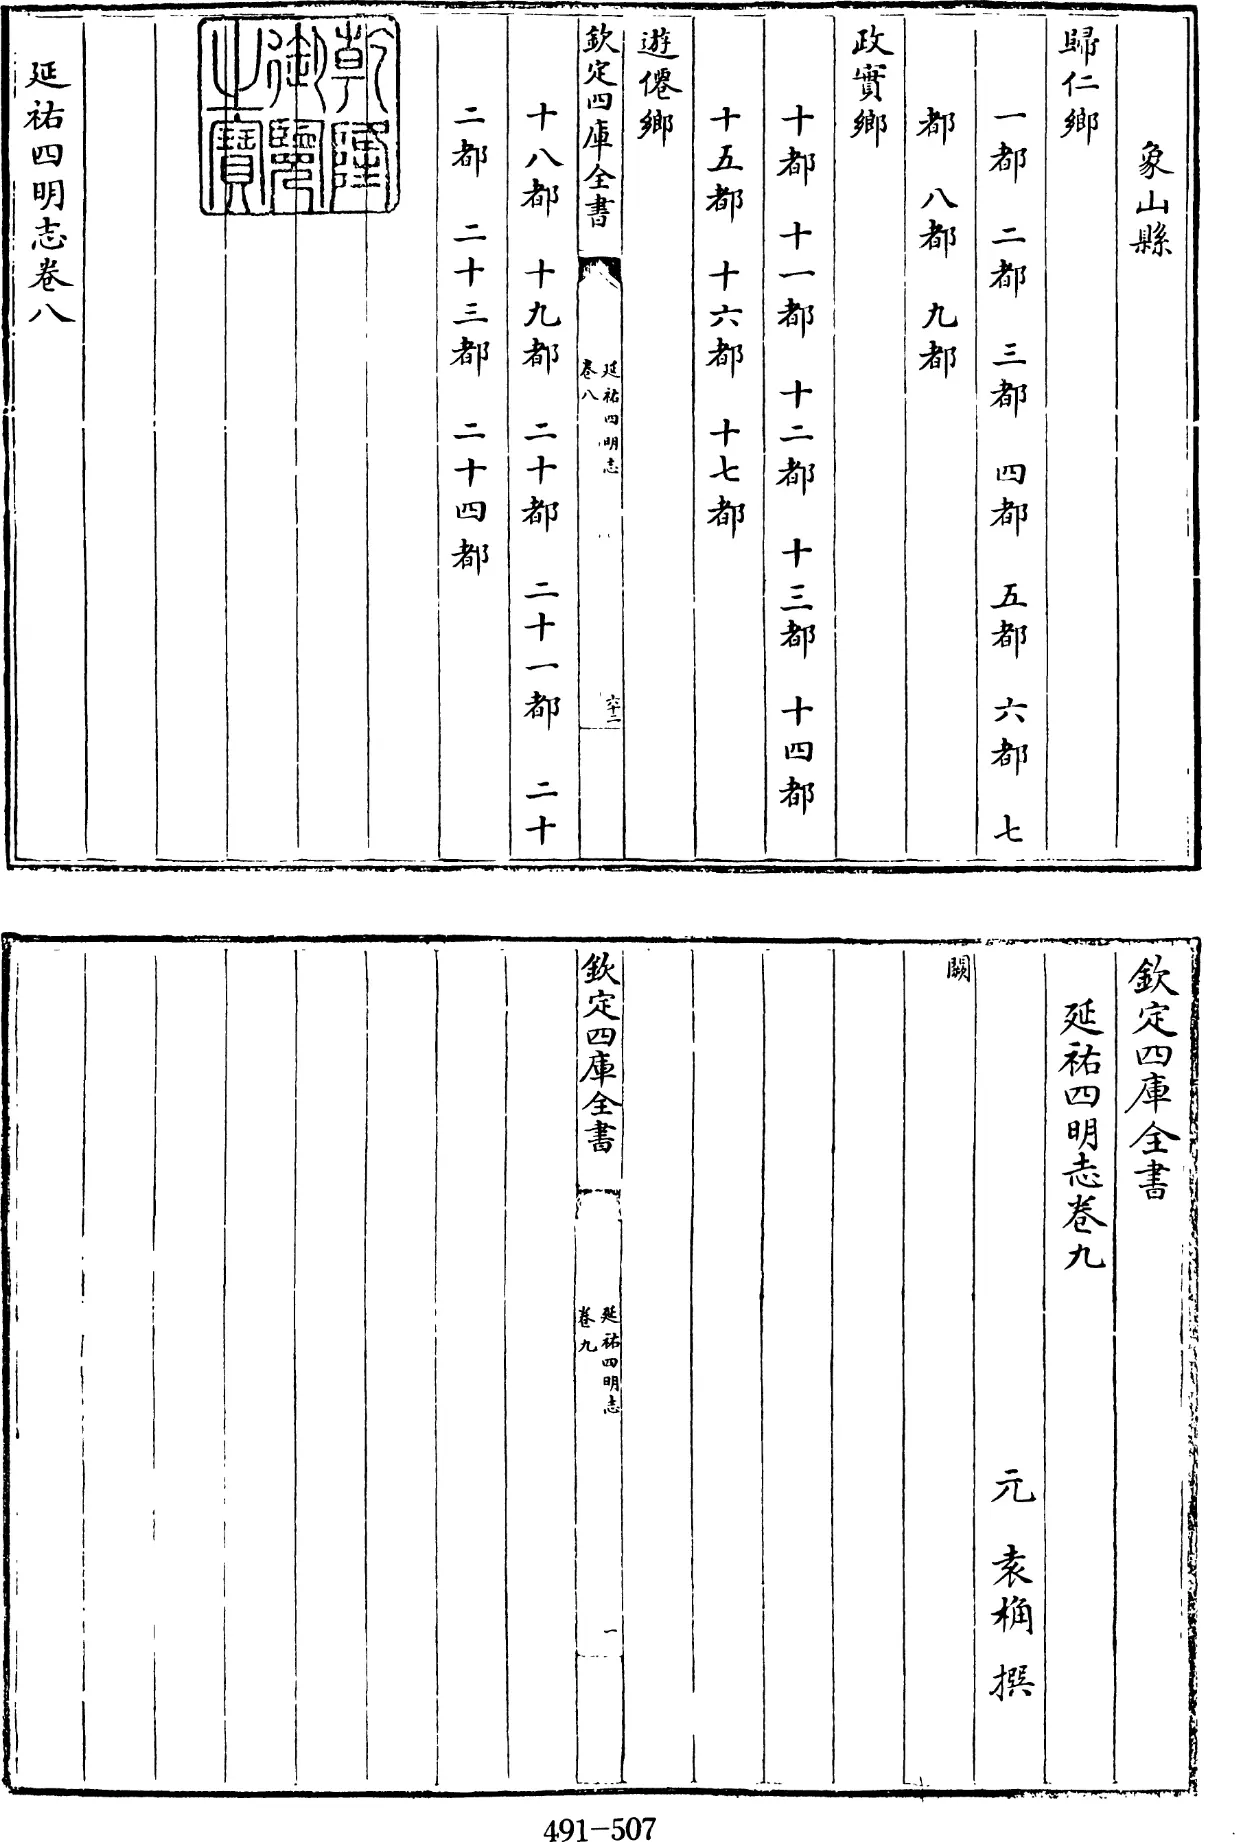 象山縣
歸仁鄉
一都 二都 三都 四都 五都 六都 七
都 八都 九都
政實鄉
十都 十一都 十二都 十三都 十四都
十五都 十六都 十七都
遊僊鄉
欽定四庫全書
延祐四明志
卷八
六十二
十八都 十九都 二十都 二十一都 二十
二都 二十三都 二十四都
乾隆
御覽
之寶
延祐四明志卷八
欽定四庫全書
延祐四明志卷九
元 袁桷 撰
闕
欽定四庫全書
延祐四明志
卷九
一
491-507